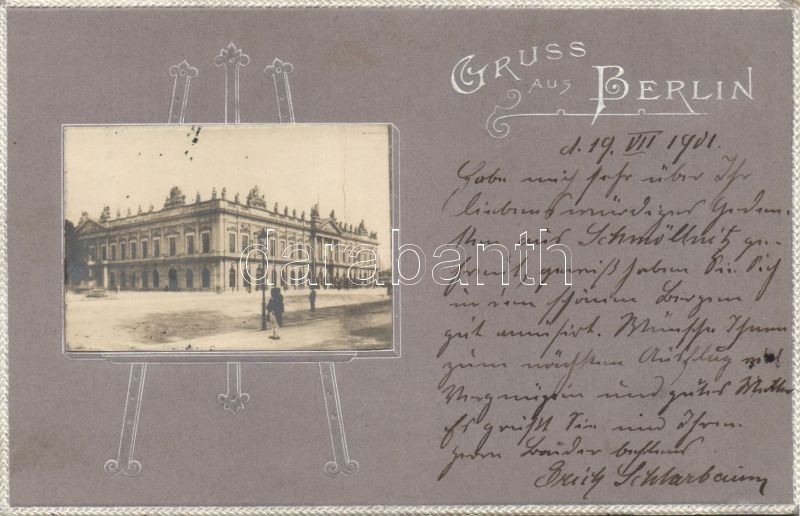 GRUSS
AUS BERLIN
d. 19. VII 1901.
Habe mich sehr über Ihr
liebenswürdiges Geden-
ken aus Schmöllnitz ge-
freut, gewiß haben Sie Sich
in den schönen Bergen
gut amüsirt. Wünsche Ihnen
zum nächsten Ausflug viel
Vergnügen und gutes Wetter
Es grüßt Sie und Ihren
Herrn Bruder bestens
Erich Schlarbaum
databanth